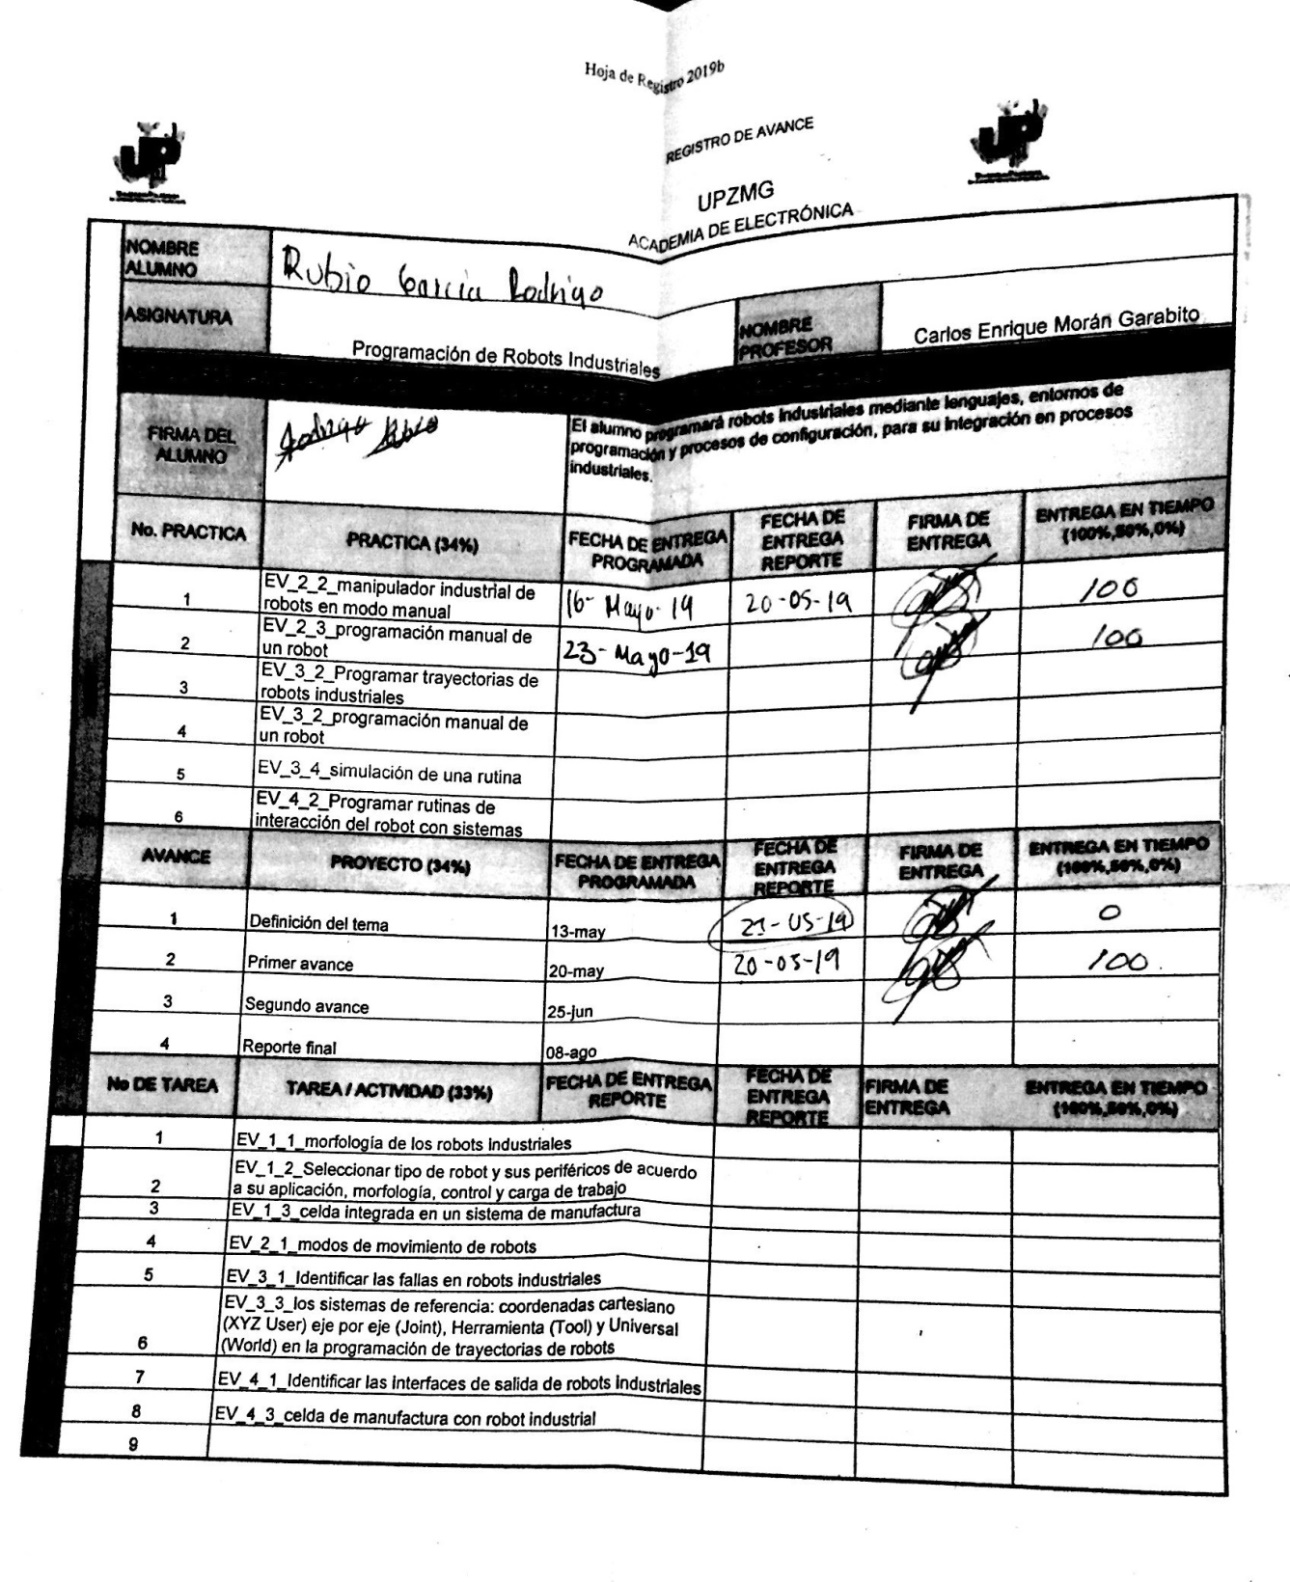 Hoja de Registro 2019b
REGISTRO DE AVANCE
UPZMG
ACADEMIA DE ELECTRÓNICA
UP
UP
NOMBRE
ALUMNO
Rubio Garcia Rodrigo
ASIGNATURA
Programación de Robots Industriales
NOMBRE
PROFESOR
Carlos Enrique Morán Garabito
FIRMA DEL
ALUMNO
Rodrigo Rubio
El alumno programará robots industriales mediante lenguajes, entornos de
programación y procesos de configuración, para su integración en procesos
industriales.
No. PRACTICA
PRACTICA (34%)
FECHA DE ENTREGA
PROGRAMADA
FECHA DE
ENTREGA
REPORTE
FIRMA DE
ENTREGA
ENTREGA EN TIEMPO
(100%,50%,0%)
1
EV_2_2_manipulador industrial de
robots en modo manual
16- Mayo- 19
20-05-19
100
2
EV_2_3_programación manual de
un robot
23-Mayo-19
100
3
EV_3_2_Programar trayectorias de
robots industriales
4
EV_3_2_programación manual de
un robot
5
EV_3_4_simulación de una rutina
6
EV_4_2_Programar rutinas de
interacción del robot con sistemas
AVANCE
PROYECTO (34%)
FECHA DE ENTREGA
PROGRAMADA
FECHA DE
ENTREGA
REPORTE
FIRMA DE
ENTREGA
ENTREGA EN TIEMPO
(100%,50%,0%)
1
Definición del tema
13-may
21-05-19
0
2
Primer avance
20-may
20-05-19
100
3
Segundo avance
25-jun
4
Reporte final
08-ago
No DE TAREA
TAREA / ACTIVIDAD (33%)
FECHA DE ENTREGA
REPORTE
FECHA DE
ENTREGA
REPORTE
FIRMA DE
ENTREGA
ENTREGA EN TIEMPO
(100%,50%,0%)
1
EV_1_1_morfología de los robots Industriales
2
EV_1_2_Seleccionar tipo de robot y sus periféricos de acuerdo
a su aplicación, morfología, control y carga de trabajo
3
EV_1_3_celda integrada en un sistema de manufactura
4
EV_2_1_modos de movimiento de robots
5
EV_3_1_Identificar las fallas en robots industriales
6
EV_3_3_los sistemas de referencia: coordenadas cartesiano
(XYZ User) eje por eje (Joint), Herramienta (Tool) y Universal
(World) en la programación de trayectorias de robots
7
EV_4_1_Identificar las interfaces de salida de robots industriales
8
EV_4_3_celda de manufactura con robot industrial
9